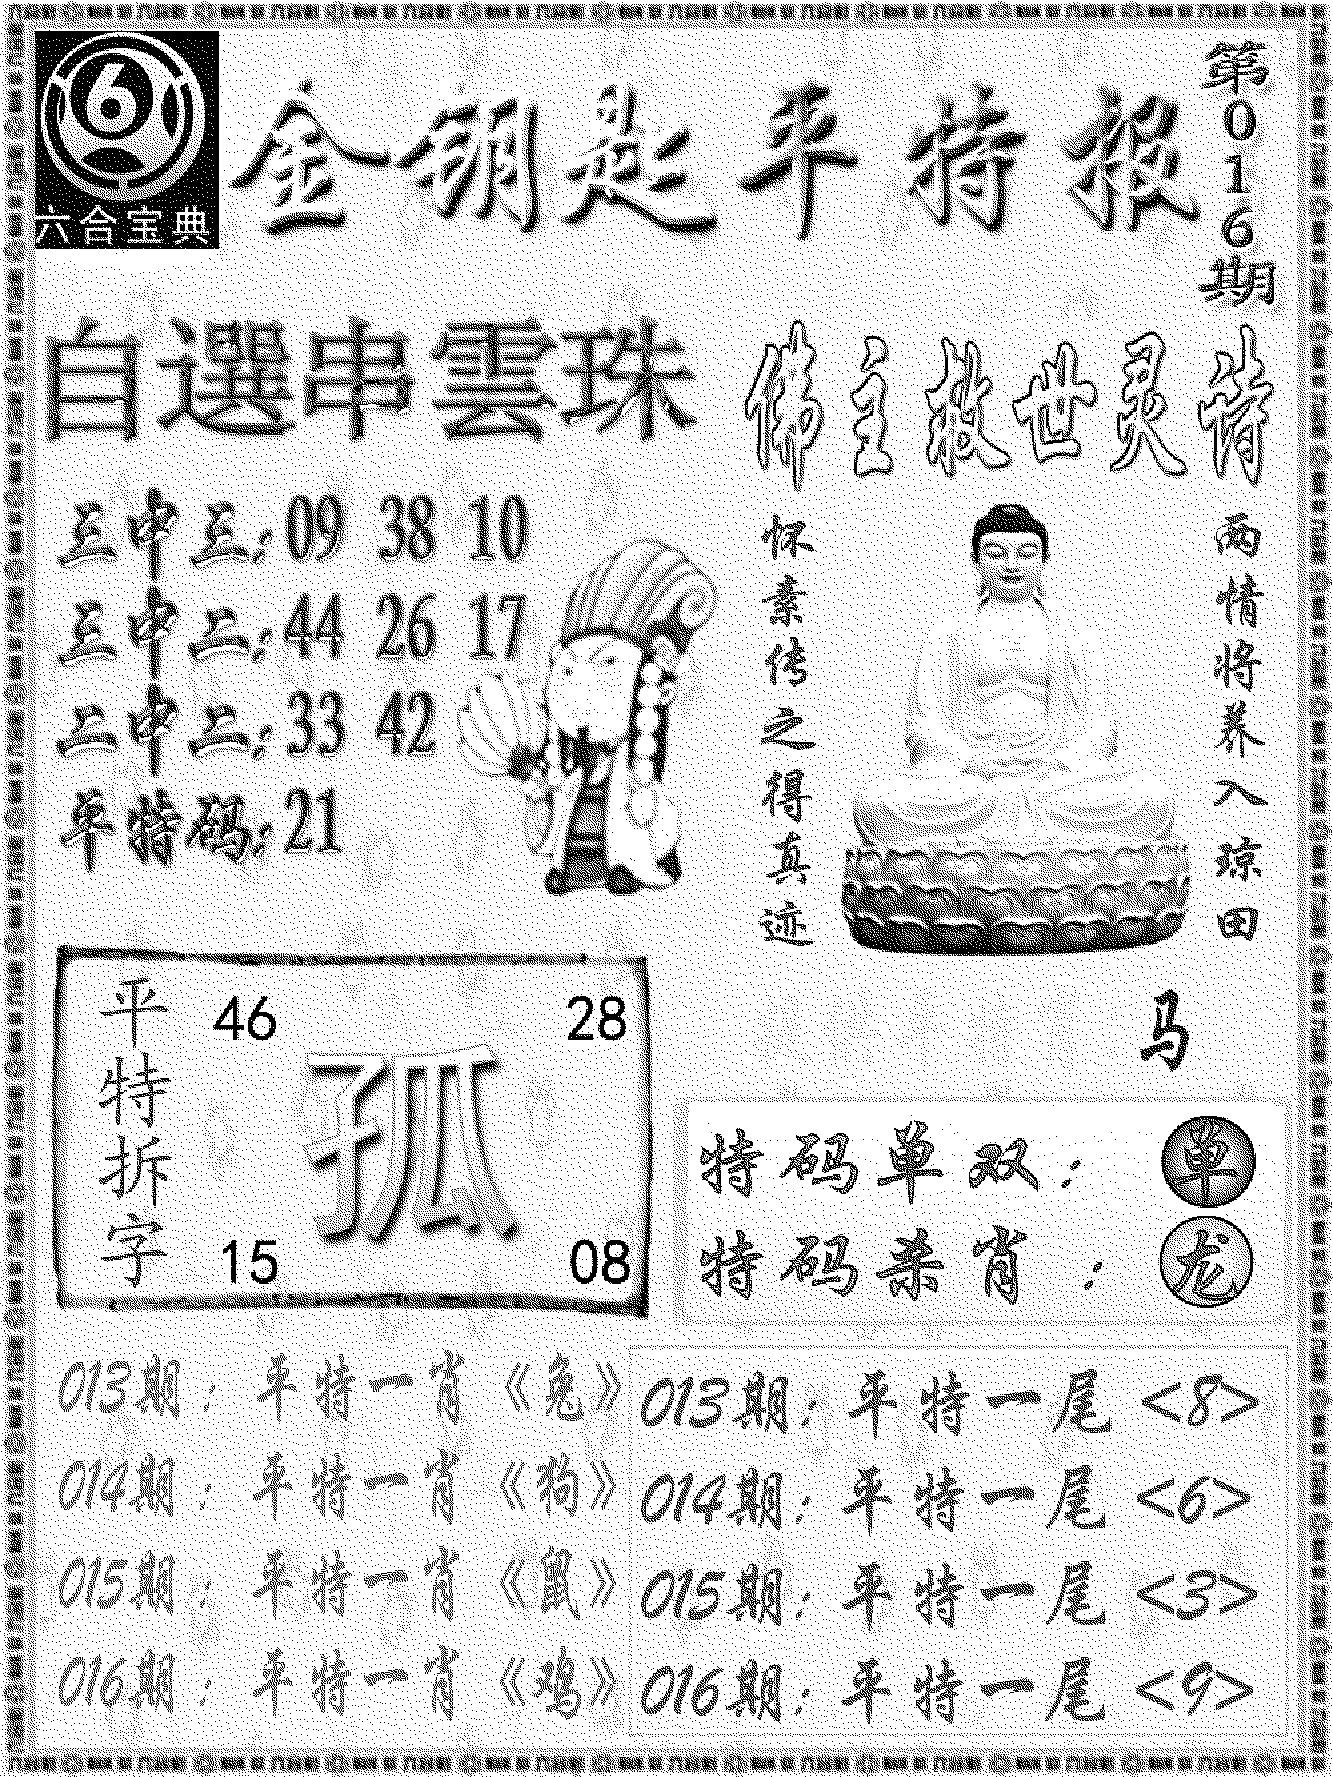 六合宝典
金钥匙平特报
第016期
自選串雲珠
三中三:09 38 10
三中二:44 26 17
二中二:33 42
平特码:21
佛主救世灵诗
两情将养入琼田
怀素传之得真迹
马
平特拆字
46 28
孤
15 08
特码单双: 单
特码杀肖: 龙
013期: 平特一肖《兔》
014期: 平特一肖《狗》
015期: 平特一肖《鼠》
016期: 平特一肖《鸡》
013期: 平特一尾 <8>
014期: 平特一尾 <6>
015期: 平特一尾 <3>
016期: 平特一尾 <9>